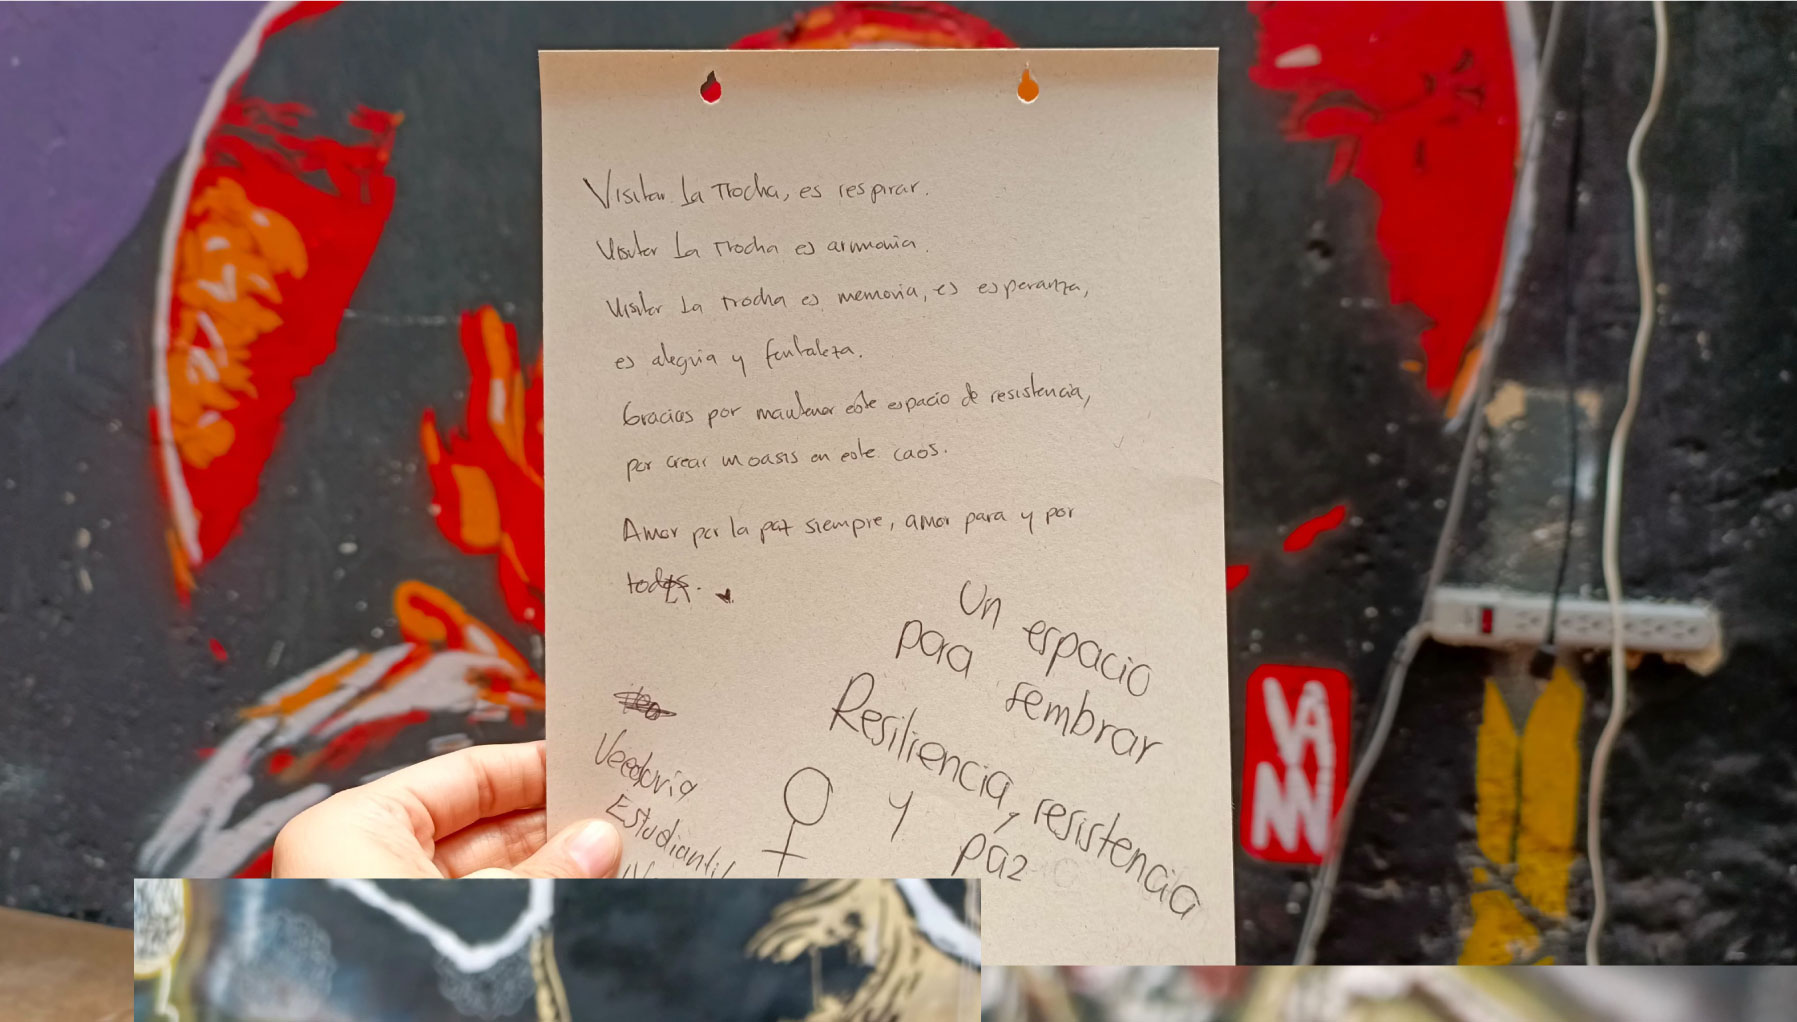 Visitar La Trocha, es respirar.
Visitar La Trocha es armonia.
Visitar La Trocha es memoria, es esperanza,
es alegria y fortaleza.
Gracias por mantener este espacio de resistencia,
por crear un oasis en este caos.
Amor por la paz siempre, amor para y por
todxs.
Un espacio
para sembrar
Resiliencia, resistencia
y paz
Veeduria
Estudiantil
VA
NN